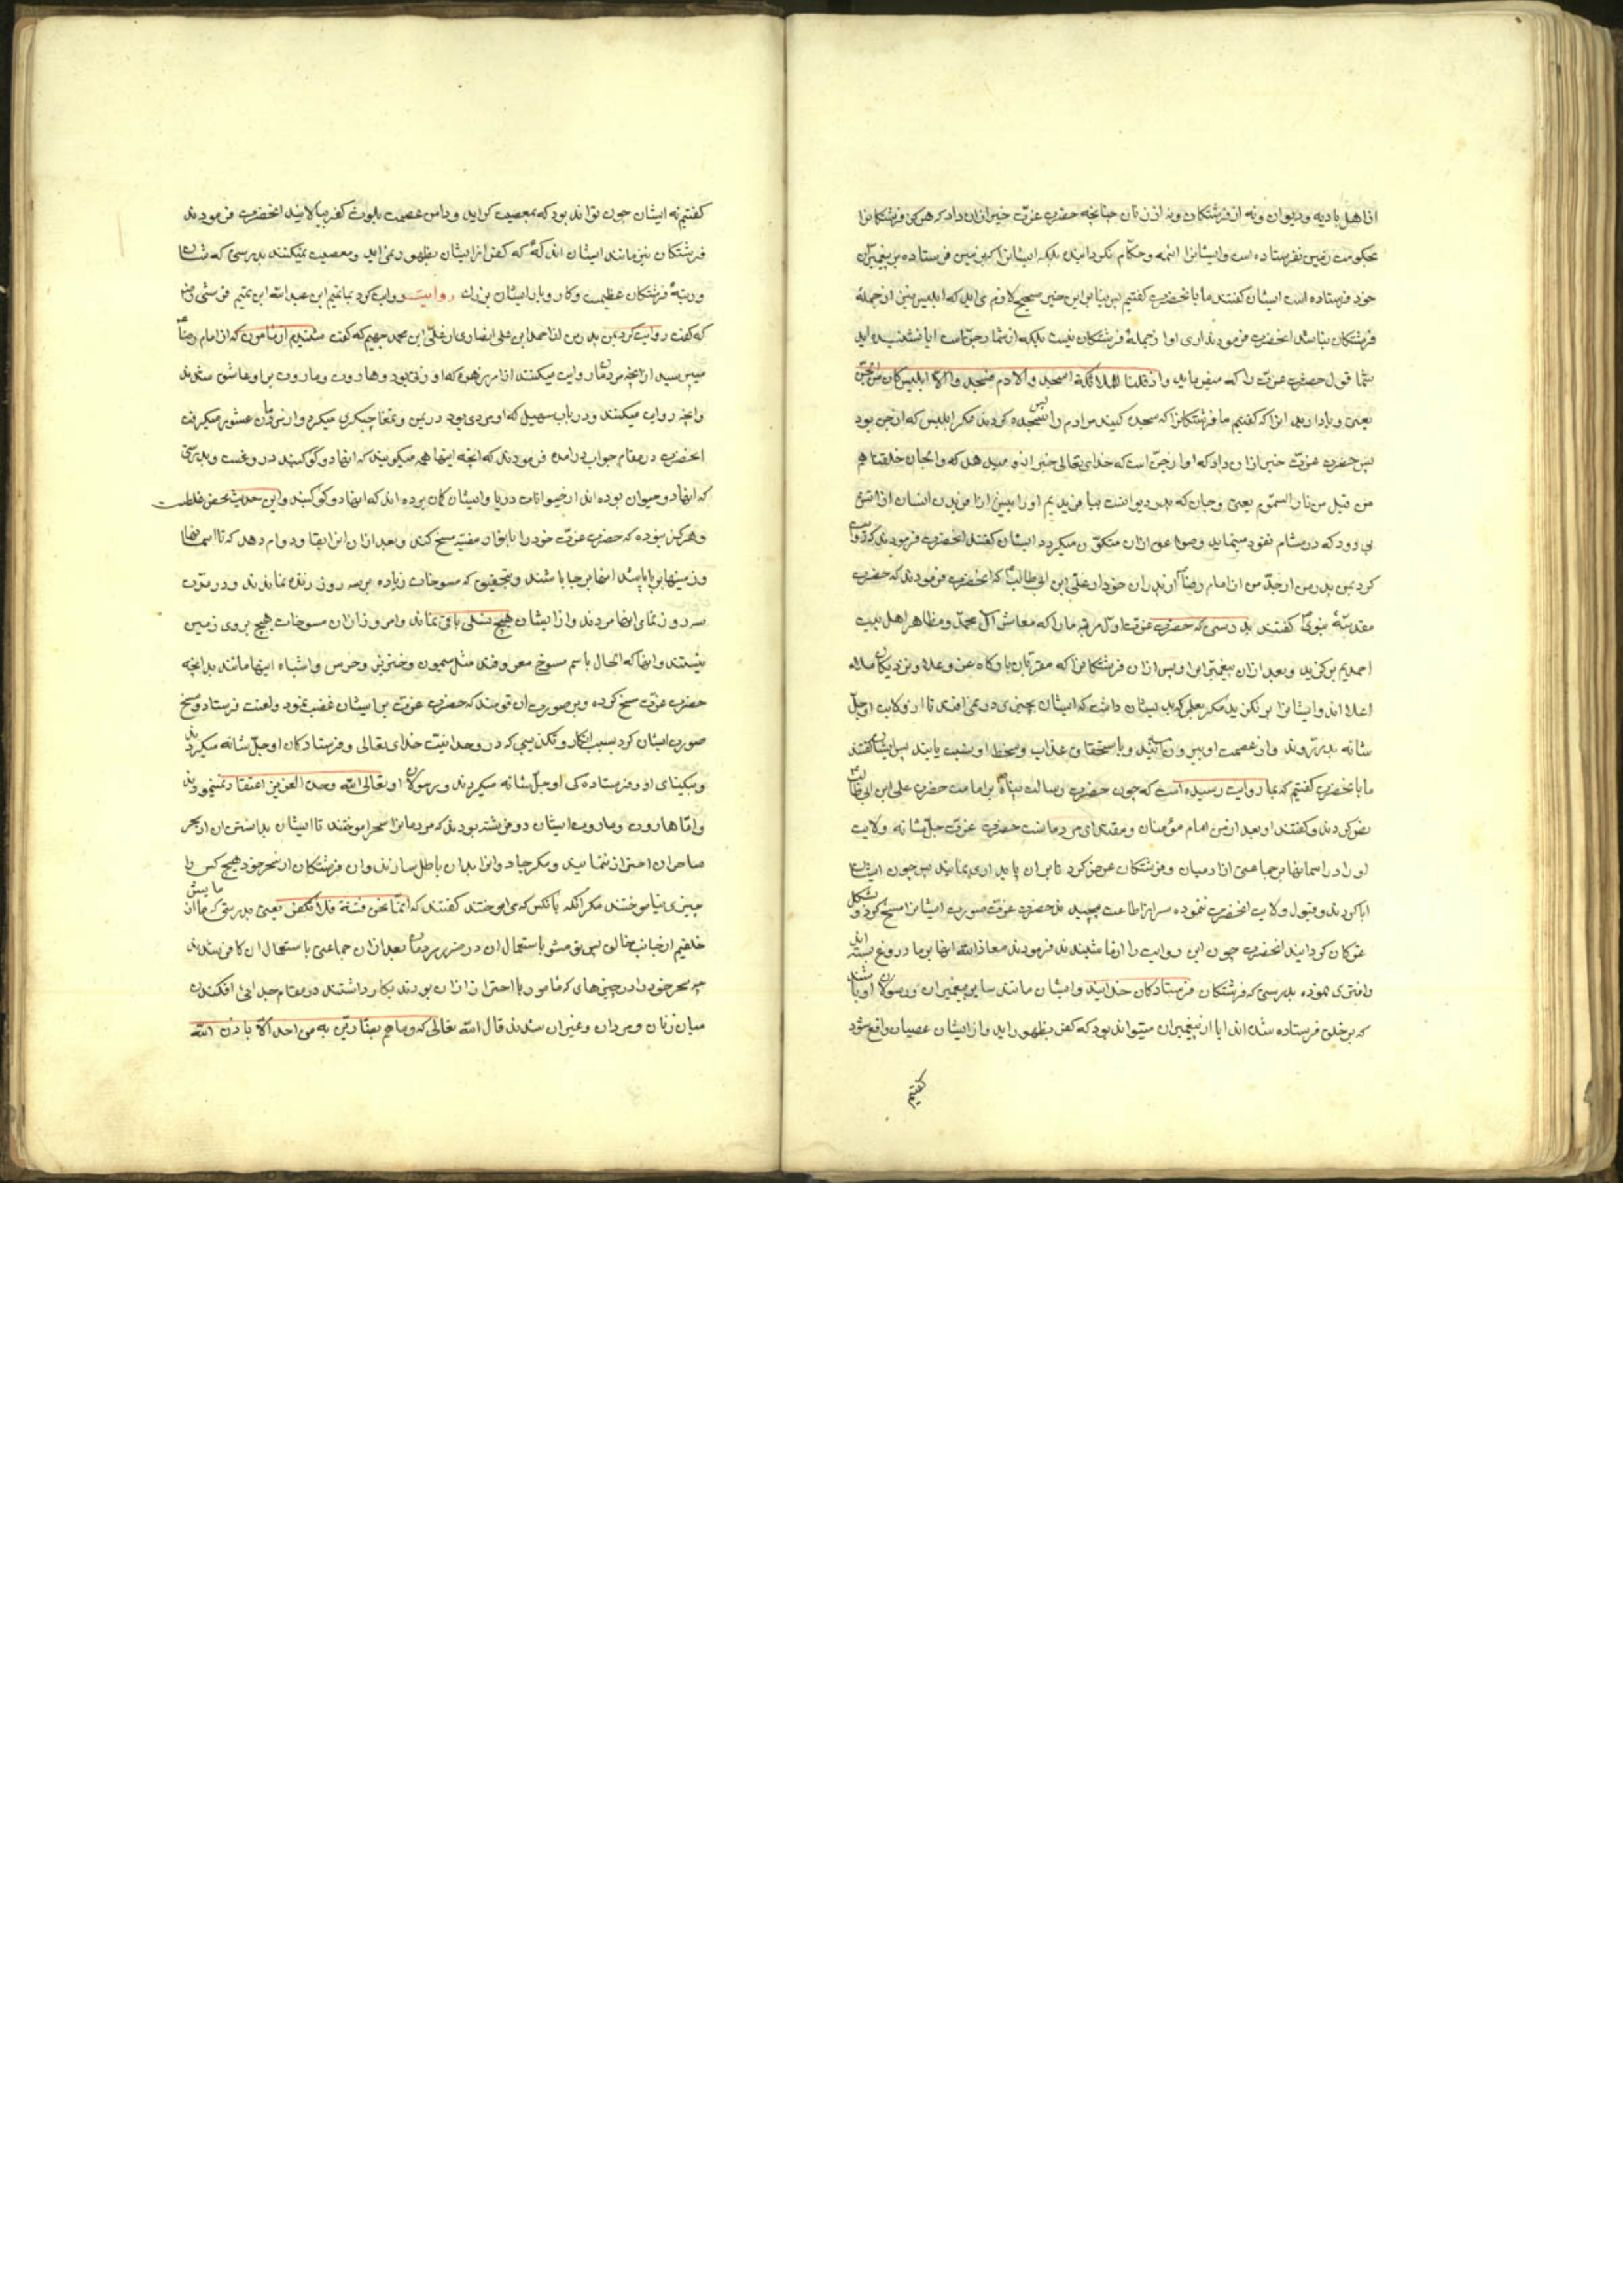 از اهل بادیه و دیوان و نه از فرشتکان و نه از زنان چنانچه حضرت عزت خبر ازان داد که هرکز فرشتکانرا
بحکومت زمین نفرستاده است و ایشانرا ائمه و حکام نکردانیده بلکه ایشانرا که بزمین فرستاده بر پیغمبران
خود فرستاده است ایشان کفتند ما با نحضرت کفتیم پس بنا براین خبر صحیح لازم می اید که ابلیس نیز از جملهٔ
فرشتکان نباشد انحضرت فرمودند اری او از جملهٔ فرشتکان نیست بلکه از شمار جن است ایا نشنیده اید
شما قول حضرت عزت را که میفرماید واذ قلنا للملائکة اسجدوا لادم فسجدوا الا ابلیس کان من الجن
یعنی و یاد ارید انرا که کفتیم ما فرشتکانرا که سجده کنید مر ادم را پس سجده کردند مکر ابلیس که از جن بود
پس حضرت عزت خبر ازان داد که او از جن است که خدای تعالی خبر ازو میدهد که والجان خلقناهم
من قبل من نار السموم یعنی و جان که پدر دیوانست بیافریدیم او را پیش از افریدن انسان از اتش
بی دود که در مشام نفوذ مینماید و صواعق ازان متکون میکردد ایشان کفتند انحضرت فرمودند که روایت
کرد بمن پدر من از جد من از امام رضا از پدران خود از علی ابن ابی طالب که انحضرت فرمودند که حضرت
مقدسهٔ نبوی کفتند بدرستی که حضرت عزت اول مرتبه ما را که معاشر ال محمد و مظاهر اهل بیت
احمدیم برکزید و بعد ازان پیغمبران او پس ازان فرشتکانرا که مقربان بارکاه عز و علا و نزدیکان ملاء
اعلا اند و ایشانرا بر نکزید مکر بعلمی که بر ایشان داشت که ایشان بچیزی در نمی افتند تا از ولایت او جل
شانه بدر روند و از عصمت او بیرون ایند و با ستحقاق عذاب و سخط او نسبت یابند پس ایشان کفتند
ما با نحضرت کفتیم که بما روایت رسیده است که چون حضرت رسالت پناه بر امامت حضرت علی ابن ابی طالب
نص کردند و کفتند او بعد از من امام مؤمنان و مقتدای مردمانست حضرت عزت جل شانه ولایت
او را در اسمانها بر جماعتی از ادمیان و فرشتکان عرض کرد تا بران پایداری نمایند پس چون ایشان
ابا کردند و قبول ولایت انحضرت ننموده سر از اطاعت پیچیدند حضرت عزت صورت ایشانرا مسخ کرد و بشکل
غوکان کردانید انحضرت چون این روایت را از ما شنیدند فرمودند معاذ الله اینها بر ما دروغ بسته اند
و افتری نموده بدرستی که فرشتکان فرستادکان خدایند و ایشان مانند سایر پیغمبران و رسولان او باشند
که بر خلق فرستاده شده اند ایا از پیغمبران میتواند بود که کفر بظهور اید و از ایشان عصیان واقع شود
کفتیم
کفتیم نه ایشان چون تواند بود که بمعصیت کراید و دامن عصمت بلوث کفر بیالایند انحضرت فرمودند
فرشتکان نیز مانند ایشان اند که که کفر از ایشان بظهور نمی اید و معصیت نمیکنند بدرستی که شان
و رتبهٔ فرشتکان عظیمست و کار و بار ایشان بزرك روایت روایت کرد بما تمیم ابن عبد الله ابن تمیم قرشی
که کفت روایت کرد بمن پدر من از احمد ابن علی انصاری از علی ابن محمد جهیم که کفت شنیدم از مامون که از امام رضا
میپرسید از انچه مردمان روایت میکنند از امر زهره که او زنی بود و هاروت و ماروت بر او عاشق شدند
و انچه روایت میکنند در باب سهیل که او مردی بود در یمن و تمغاچیکری میکرد و از مردمان عشور میکرفت
انحضرت در مقام جواب درامده فرمودند که انچه اینها همه میکویند که انها دو کوکبند دروغست و بدرستی
که انها دو حیوان بوده اند از حیوانات دریا و ایشان کمان برده اند که انها دو کوکبند و این حدیث محض غلطست
و هرکز نبوده که حضرت عزت خود را بانوار مضیئه مسخ کند و بعد ازان انرا ابقا و دوام دهد که تا اسمانها
و زمینها بر پا باشند انها بر جا باشند و بتحقیق که مسوخات زیاده بر سه روز زنده نماندند و در مدت
سه روز تمام انها مردند و از ایشان هیچ نسلی باقی نماند و امروز ازان مسوخات هیچ بروی زمین
نیستند و انها که الحال باسم مسوخ معروفند مثل میمون و خنزیر و خرس و اشباه اینها مانند بدانچه
حضرت عزت مسخ کرده و بر صورت ان قومند که حضرت عزت بر ایشان غضب نمود و لعنت فرستاد و مسخ
صورت ایشان کرد بسبب انکار و تکذیبی که در وحدانیت خدای تعالی و فرستادکان او جل شانه میکردند
و بیکتای او و فرستاده کی او جل شانه میکردند و برسولان او تعالی الله وحده العزیز اعتقاد نمینمودند
و اما هاروت و ماروت ایشان دو فرشته بودند که مردمانرا سحر اموختند تا ایشان بدانستن ان از سحر
ساحران احتراز نمایند و مکر جادوانرا بدان باطل سازند و ان فرشتکان از سحر خود هیچ کس را
چیزی نیاموختند مکر انکه بانکس که می اموختند کفتند که انما نحن فتنة فلا تکفر یعنی بدرستی که ما ازمایش
خلقیم از جانب خالق پس تو مشو باستعمال ان در ضرر مردمان بعد ازان جماعتی باستعمال ان کافر شدند
چه سحر خود را در چیزهای که مامور با احتراز ازان بودند بکار داشتند در مقام جدائی افکندن
میان زنان و مردان و غیر ان شدند قال الله تعالی که وما هم بضارین به من احد الا باذن الله